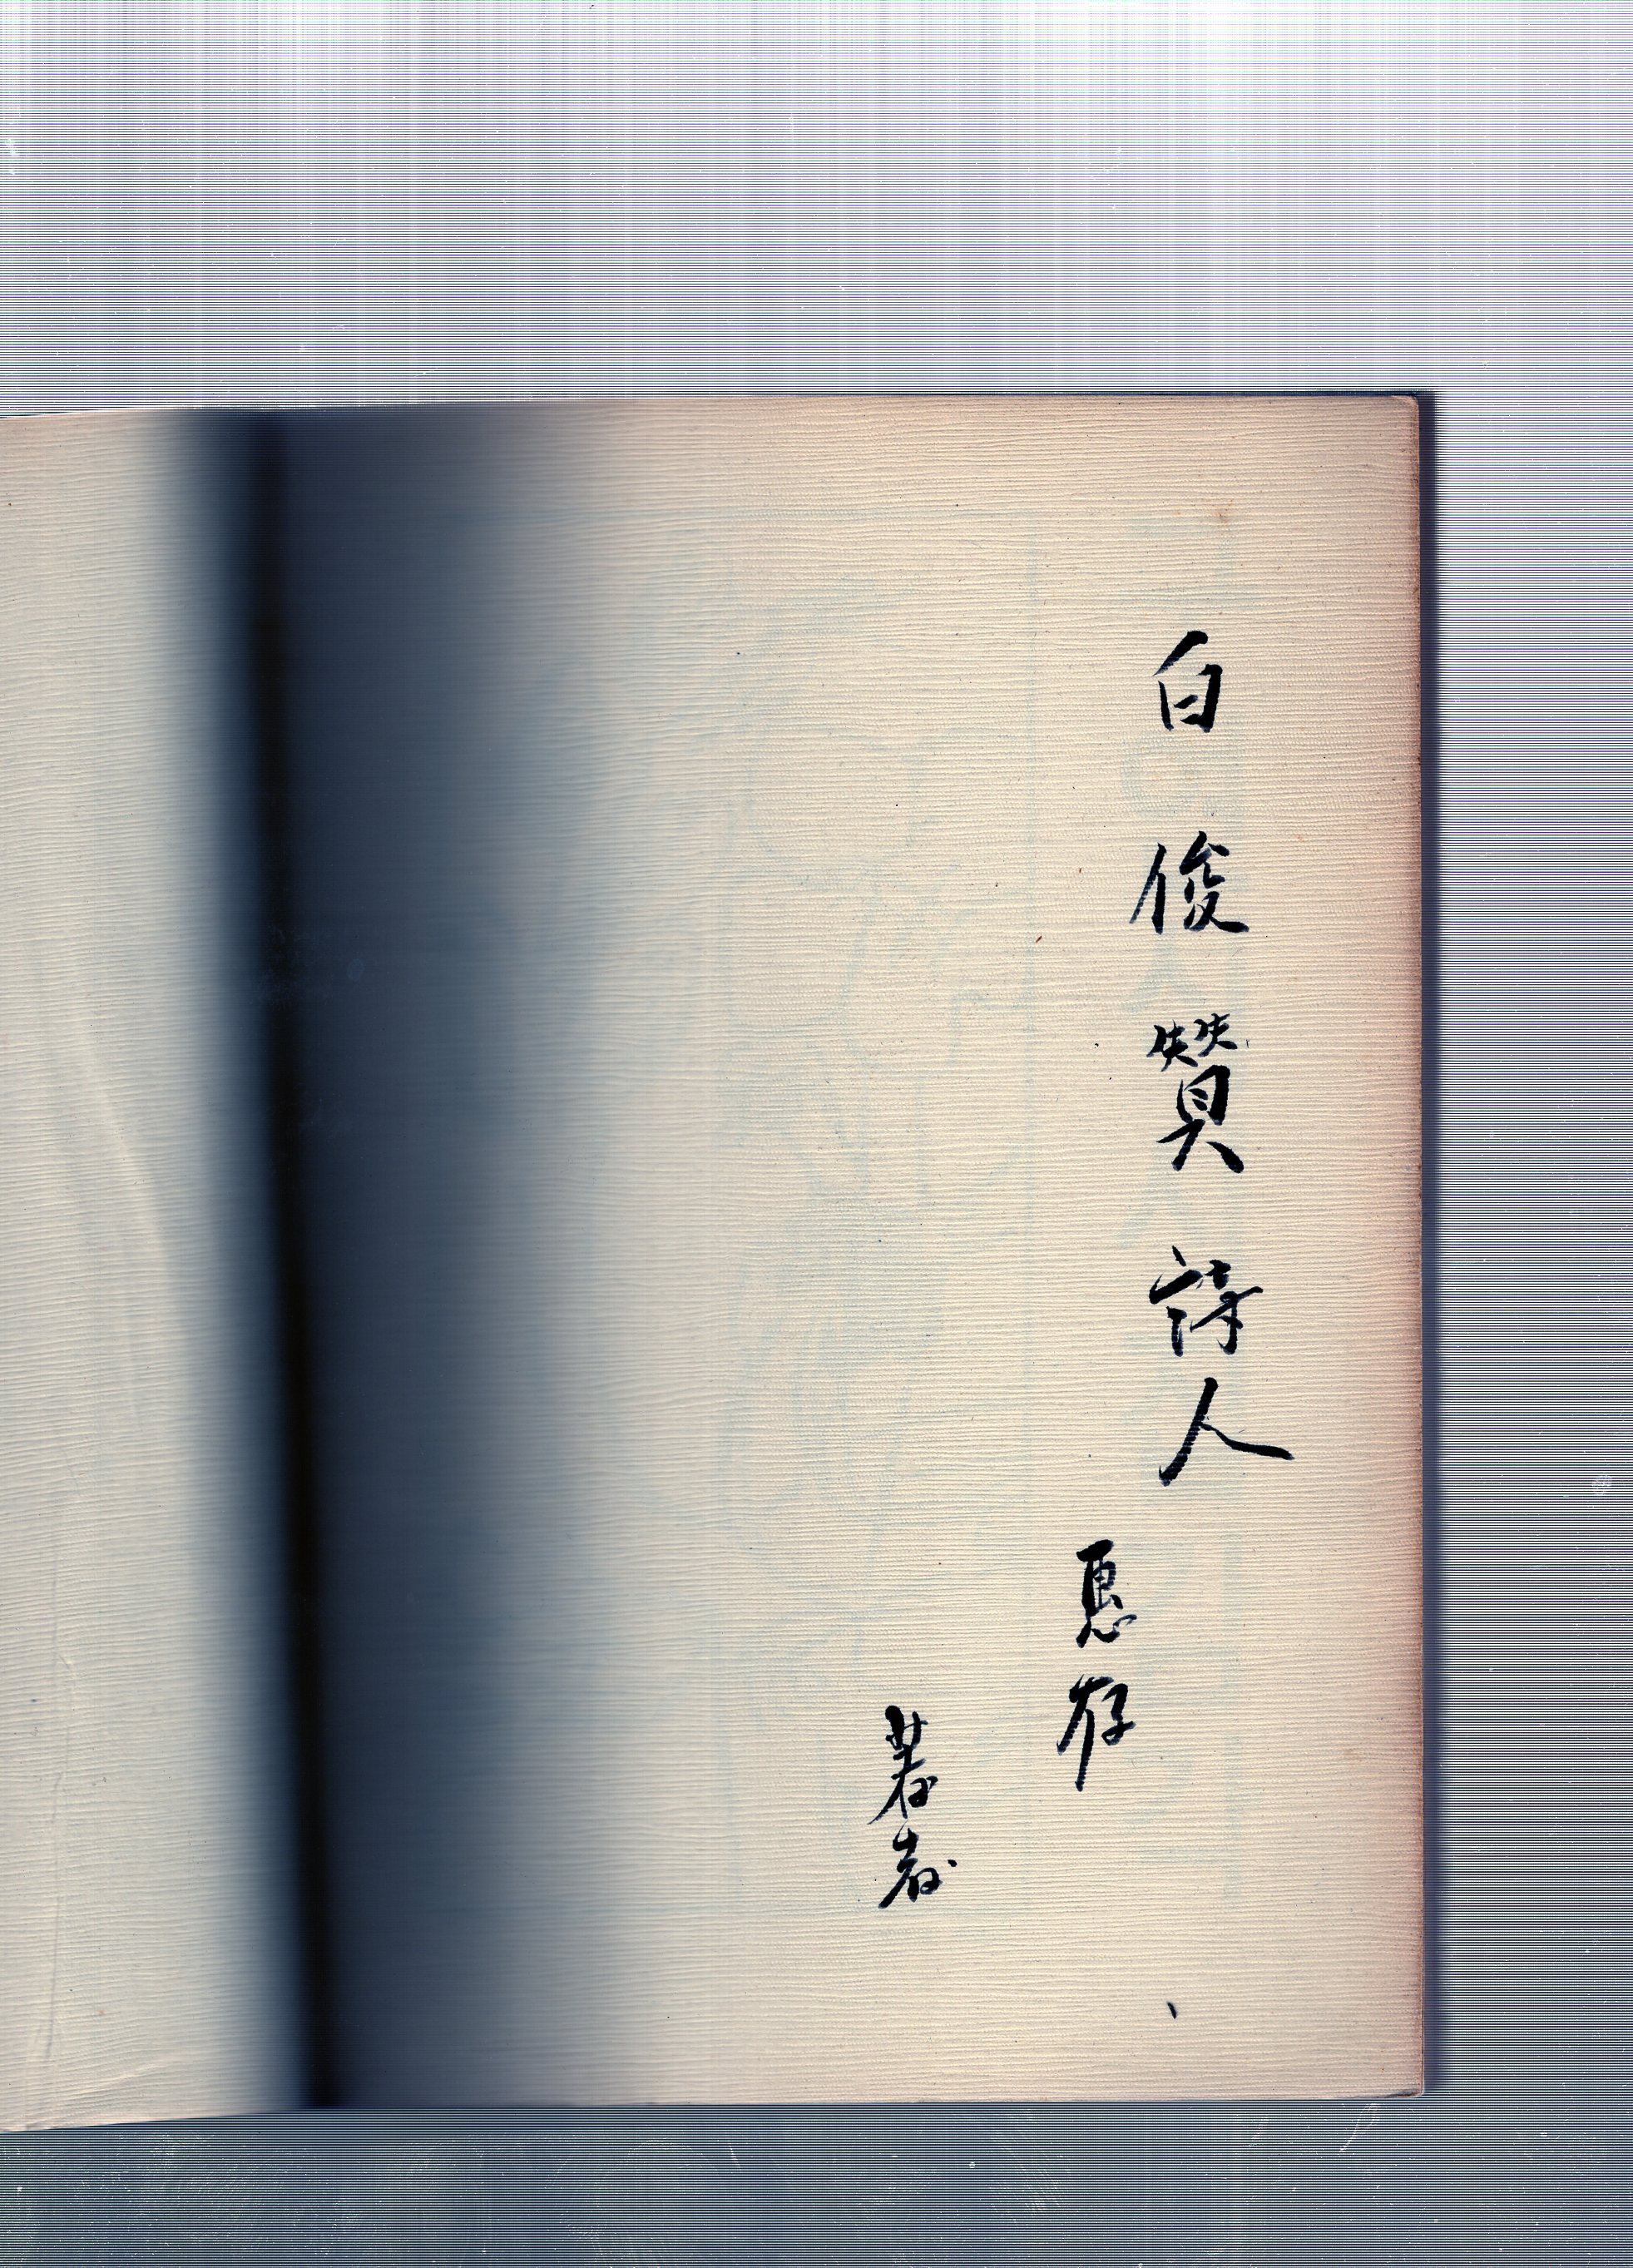 白俊贊詩人
惠存
著者